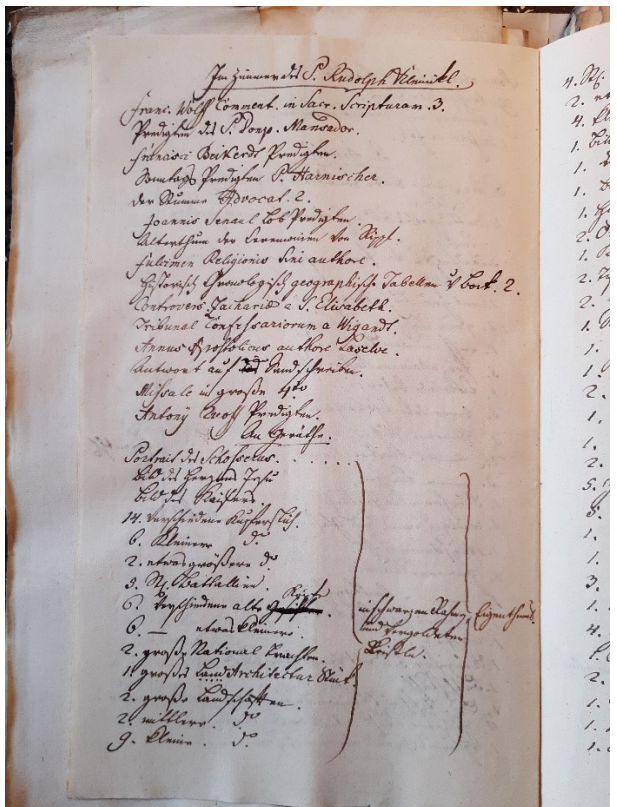 Im Zimmer des P. Rudolph
Franc. Wolff Comment. in Sacr. Scripturam. 3.
Predigten des P. Donp. Mansador.
Francisci Predigten.
Sonntags Predigten P. Harnischer.
der Stumme Advocat. 2.
Joannis Senaul Lob Predigten
Alterthum der Ceremonien von Rippl.
Fulcimen Religionis sine authore.
Historisch Chronologisch geographische Tabellen 2.
Controvers. Zachariæ a S. Elisabeth.
Tribunal Confessariorum a Wigandt.
Annus Apostolicus authore Laselve.
Antwort auf Sendschreiben.
Missale in große 4to
Antony Predigten.
An Geräthe.
Portrait des . . . . . .
Bild des Herzens Jesu
Bild des Kaisers.
14. verschiedene Kupferstich.
6. Kleinere do.
2. etwas größere do.
3. St. Battallien.
6. verschiedene alte Köpfe.
6. — etwas kleinere.
2. große National Trachten.
1. großes Land Architectur Stük
2. große Landschaften.
2. mittlere. do
9. kleine. do.
in schwarzen Rahm
und vergoldeten
Leisteln.
Eigenthum.
4. St.
2.
4.
1.
1.
1.
1.
2.
1.
2.
2.
1.
1.
1.
2.
1.
1.
2.
5.
3.
1.
1.
3.
1.
4.
1.
2.
1.
1.
1.